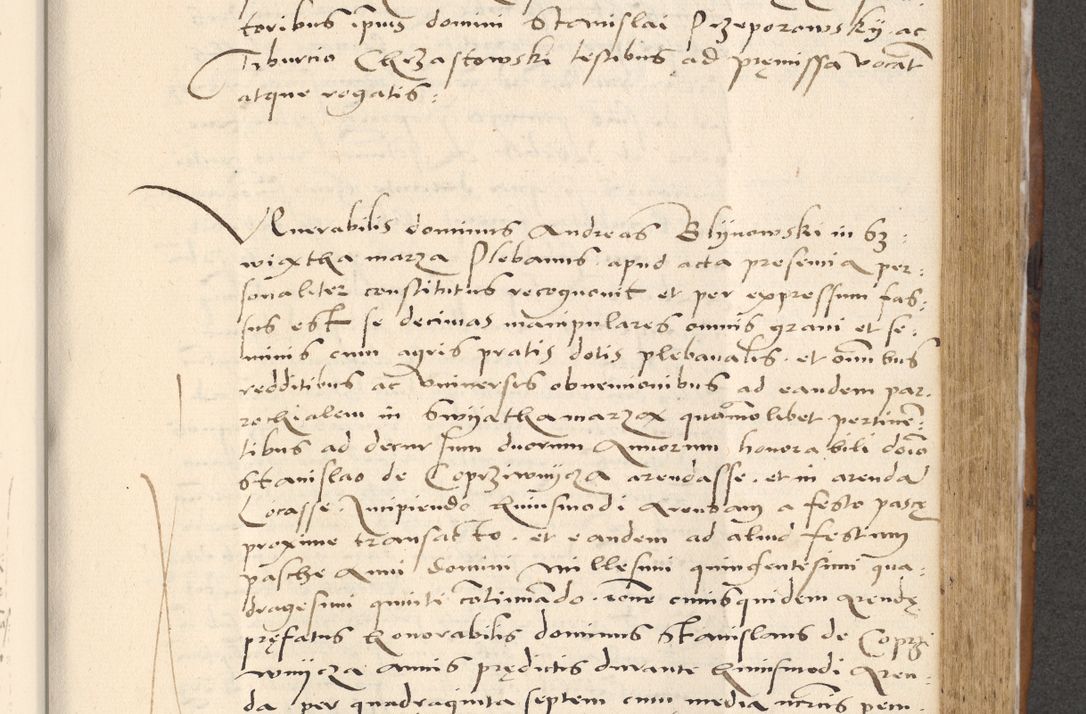 toribus ipius domini Stanislai Przeporowsky ac
Tiburcio Chrzastowski testibus ad pręmissa vocat
atque rogatis :
Vlnerabilis dominus Andreas Blynowski in Sz :
wixtha marza Plebanus apud acta presencia per :
sonaliter constitutus recognovit et per expressum fas :
sus est se decimas manipulares omnis grani et se :
minis cum agris pratis dotis plebanalis . et omnibus
redditibus ac vniversis obvencionibus ad eandem par :
rochialem in Swyathamarzax quomolibet pertinen :
tibus ad decursum duorum Annorum honorabili dōīo
Stanislao de Coprziwnycza arendasse . et in arendā
Locasse . Incipiendo huiusmodi Arendam a festo pascę
proxime transacto . et eandem ad aliud festum
pasche Anni Domini millesimi quingentesimi qua :
dragesimi quinti cōtinuādo . rōne cuiusquidem Arendę
pręfatus honorabilis dominus Stanislaus de Coprzi
wnycza annis prędictis durante huiusmodi Aren :
da per quadraginta septem cum media mrcis pecu :